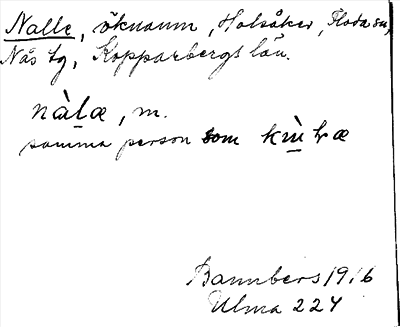 Nalle, öknamn, Holsåker, Floda sn,
Nås tg, Kopparbergs län.
nàlæ, m.
samma person som
Bannbers 1916
Ulma 224